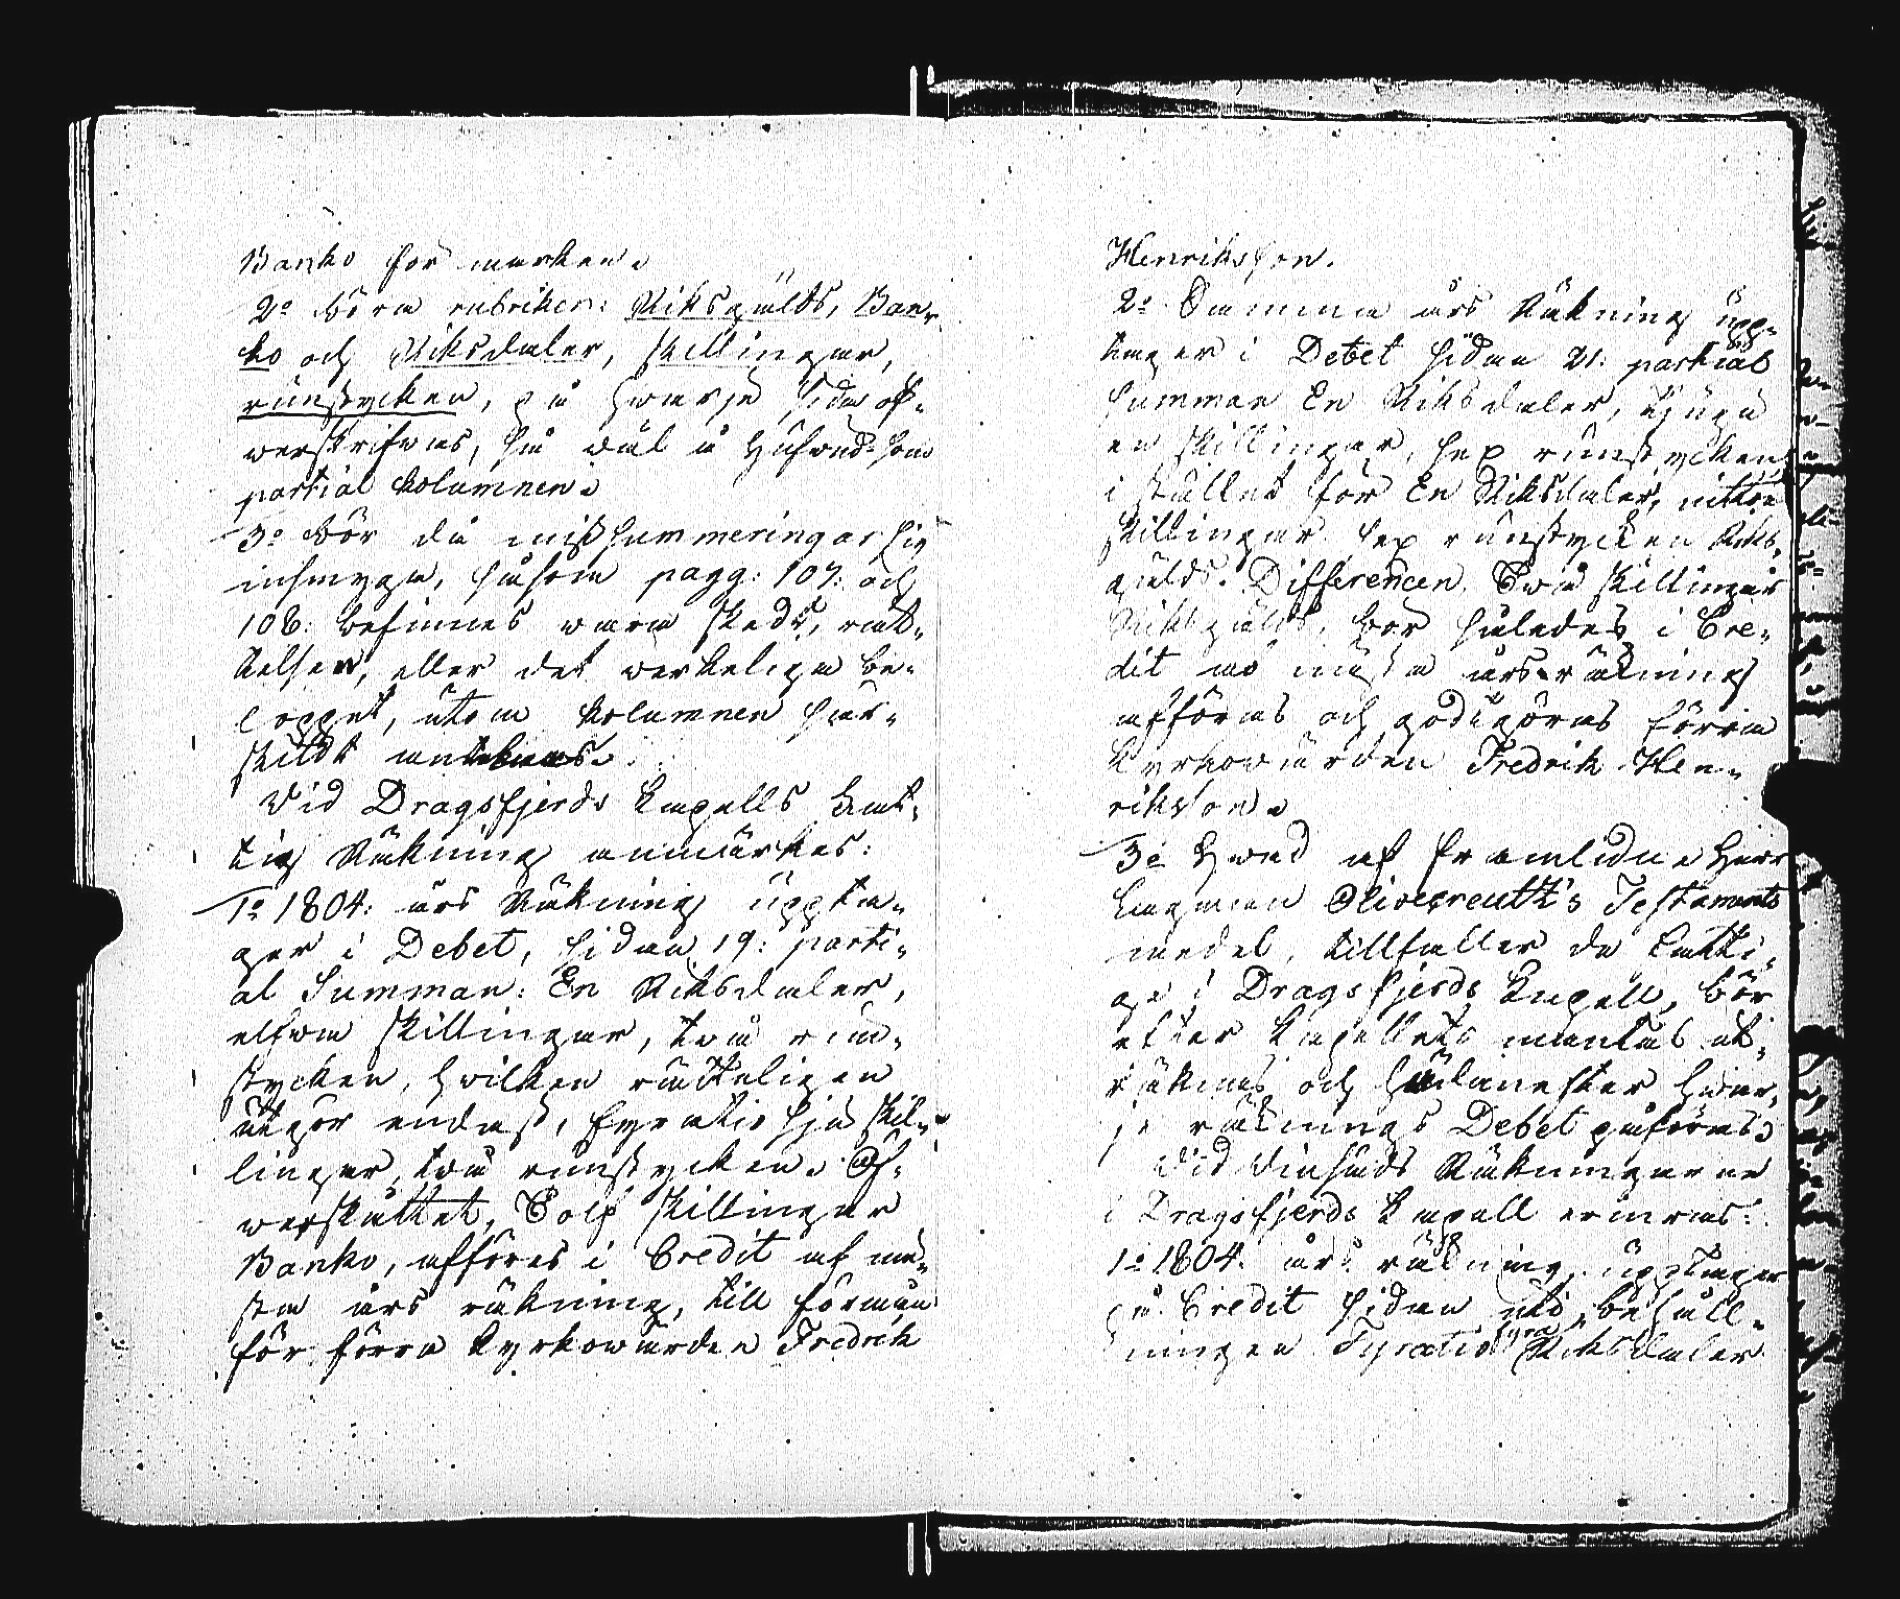 Banko för marken.
2o Böra rubriker: Riksgälds, Ban-
ko och Riksdaler, Skillingar,
runstycken, på hwarje sida öf-
werskrifwas, så wäl å Hufwud- som
partial kolumnen.
3o Bör då missummeringar sig
insmyga, såsom pagg: 107: och
108: befinnes wara skedt, rät-
telsen, eller det werkeliga be-
loppet, utom kolumnen sär-
skildt antecknas.
Vid Dragsfjerds Capells Fat-
tig Räkning anmärkes:
1o 1804: års Räkning uppta-
ger i Debet, sidan 19: parti-
al Summan: En Riksdaler,
elfwa Skillingar, två run-
stycken, hwilken rätteligen
utgör endast, fyratio sju Skil-
lingar, två runstycken. Öf-
werskottet, Tolf Skillingar
Banko, afföres i Credit af nä-
sta års räkning, till förmån
för förra Kyrkowärden Fredrik
Henriksson.
2o Samma års Räkning upp-
tager i Debet sidan 21: partial
summan En Riksdaler, tjugu
en Skillingar, sex runstycken
i stället för En Riksdaler, nitton
Skillingar sex runstycken Riks-
gälds. Differencen, Twå Skillingar
Riksgälds, bör således i Cre-
dit af nästa årsräkning
afföras och godtgöras förra
Kyrkowärden Fredrik Hen-
riksson.
3o Hwad af framlidne Herr
Lagman Olivecreutz's Testaments
medel, tillfaller de Fatti-
ga i Dragsfjerds Capell, bör
efter Capellets mantal ut-
räknas och sedan efter hwar-
je räknings Debet påföras.
Vid Vinsäds Räkningarne
i Dragsfjerds Capell erinras:
1o 1804: års räkning, upptager
på Credit sidan utj behåll-
ningen Fyratio fyra Riksdaler